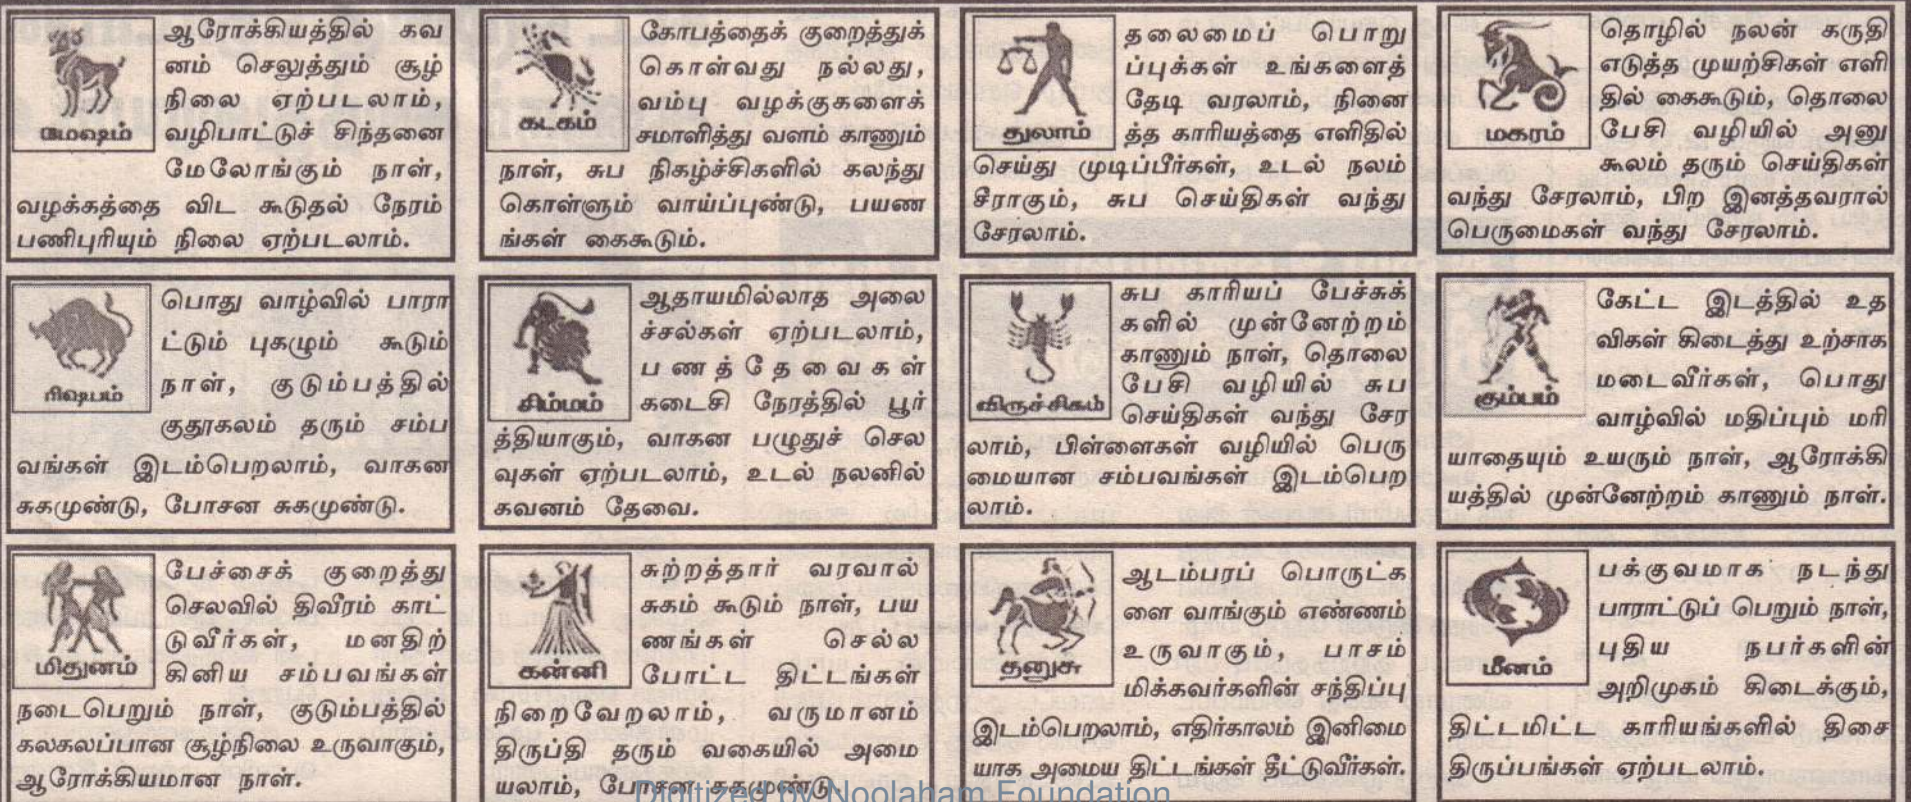 மேஷம்
ஆரோக்கியத்தில் கவ
னம் செலுத்தும் சூழ்
நிலை ஏற்படலாம்,
வழிபாட்டுச் சிந்தனை
மேலோங்கும் நாள்,
வழக்கத்தை விட கூடுதல் நேரம்
பணிபுரியும் நிலை ஏற்படலாம்.
ரிஷபம்
பொது வாழ்வில் பாரா
ட்டும் புகழும் கூடும்
நாள், குடும்பத்தில்
குதூகலம் தரும் சம்ப
வங்கள் இடம்பெறலாம், வாகண
சுகமுண்டு, போசன சுகமுண்டு.
மிதுனம்
பேச்சைக் குறைத்து
செலவில் திவீரம் காட்
டுவீர்கள், மனதிற்
கினிய சம்பவங்கள்
நடைபெறும் நாள், குடும்பத்தில்
கலகலப்பான சூழ்நிலை உருவாகும்,
ஆரோக்கியமான நாள்.
கடகம்
கோபத்தைக் குறைத்துக்
கொள்வது நல்லது,
வம்பு வழக்குகளைக்
சமாளித்து வளம் காணும்
நாள், சுப நிகழ்ச்சிகளில் கலந்து
கொள்ளும் வாய்ப்புண்டு, பயண
ங்கள் கைகூடும்.
சிம்மம்
ஆதாயமில்லாத அலை
ச்சல்கள் ஏற்படலாம்,
பணத்தேவைகள்
கடைசி நேரத்தில் பூர்
த்தியாகும், வாகன பழுதுச் செல
வுகள் ஏற்படலாம், உடல் நலனில்
கவனம் தேவை.
கன்னி
சுற்றத்தார் வரவால்
சுகம் கூடும் நாள், பய
ணங்கள் செல்ல
போட்ட திட்டங்கள்
நிறைவேறலாம், வருமானம்
திருப்தி தரும் வகையில் அமை
யலாம், போசன சுகமுண்டு
துலாம்
தலைமைப் பொறு
ப்புக்கள் உங்களைத்
தேடி வரலாம், நினை
த்த காரியத்தை எளிதில்
செய்து முடிப்பீர்கள், உடல் நலம்
சீராகும், சுப செய்திகள் வந்து
சேரலாம்.
விருச்சிகம்
சுப காரியப் பேச்சுக்
களில் முன்னேற்றம்
காணும் நாள், தொலை
பேசி வழியில் சுப
செய்திகள் வந்து சேர
லாம், பிள்ளைகள் வழியில் பெரு
மையான சம்பவங்கள் இடம்பெற
லாம்.
தனுசு
ஆடம்பரப் பொருட்க
ளை வாங்கும் எண்ணம்
உருவாகும், பாசம்
மிக்கவர்களின் சந்திப்பு
இடம்பெறலாம், எதிர்காலம் இனிமை
யாக அமைய திட்டங்கள் தீட்டுவீர்கள்.
மகரம்
தொழில் நலன் கருதி
எடுத்த முயற்சிகள் எளி
தில் கைகூடும், தொலை
பேசி வழியில் அனு
கூலம் தரும் செய்திகள்
வந்து சேரலாம், பிற இனத்தவரால்
பெருமைகள் வந்து சேரலாம்.
கும்பம்
கேட்ட இடத்தில் உத
விகள் கிடைத்து உற்சாக
மடைவீர்கள், பொது
வாழ்வில் மதிப்பும் மரி
யாதையும் உயரும் நாள், ஆரோக்கி
யத்தில் முன்னேற்றம் காணும் நாள்.
மீனம்
பக்குவமாக நடந்து
பாராட்டுப் பெறும் நாள்,
புதிய நபர்களின்
அறிமுகம் கிடைக்கும்,
திட்டமிட்ட காரியங்களில் திசை
திருப்பங்கள் ஏற்படலாம்.
Digitized by Noolaham Foundation